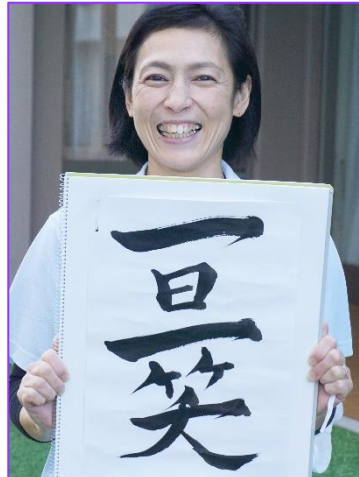 一日一笑